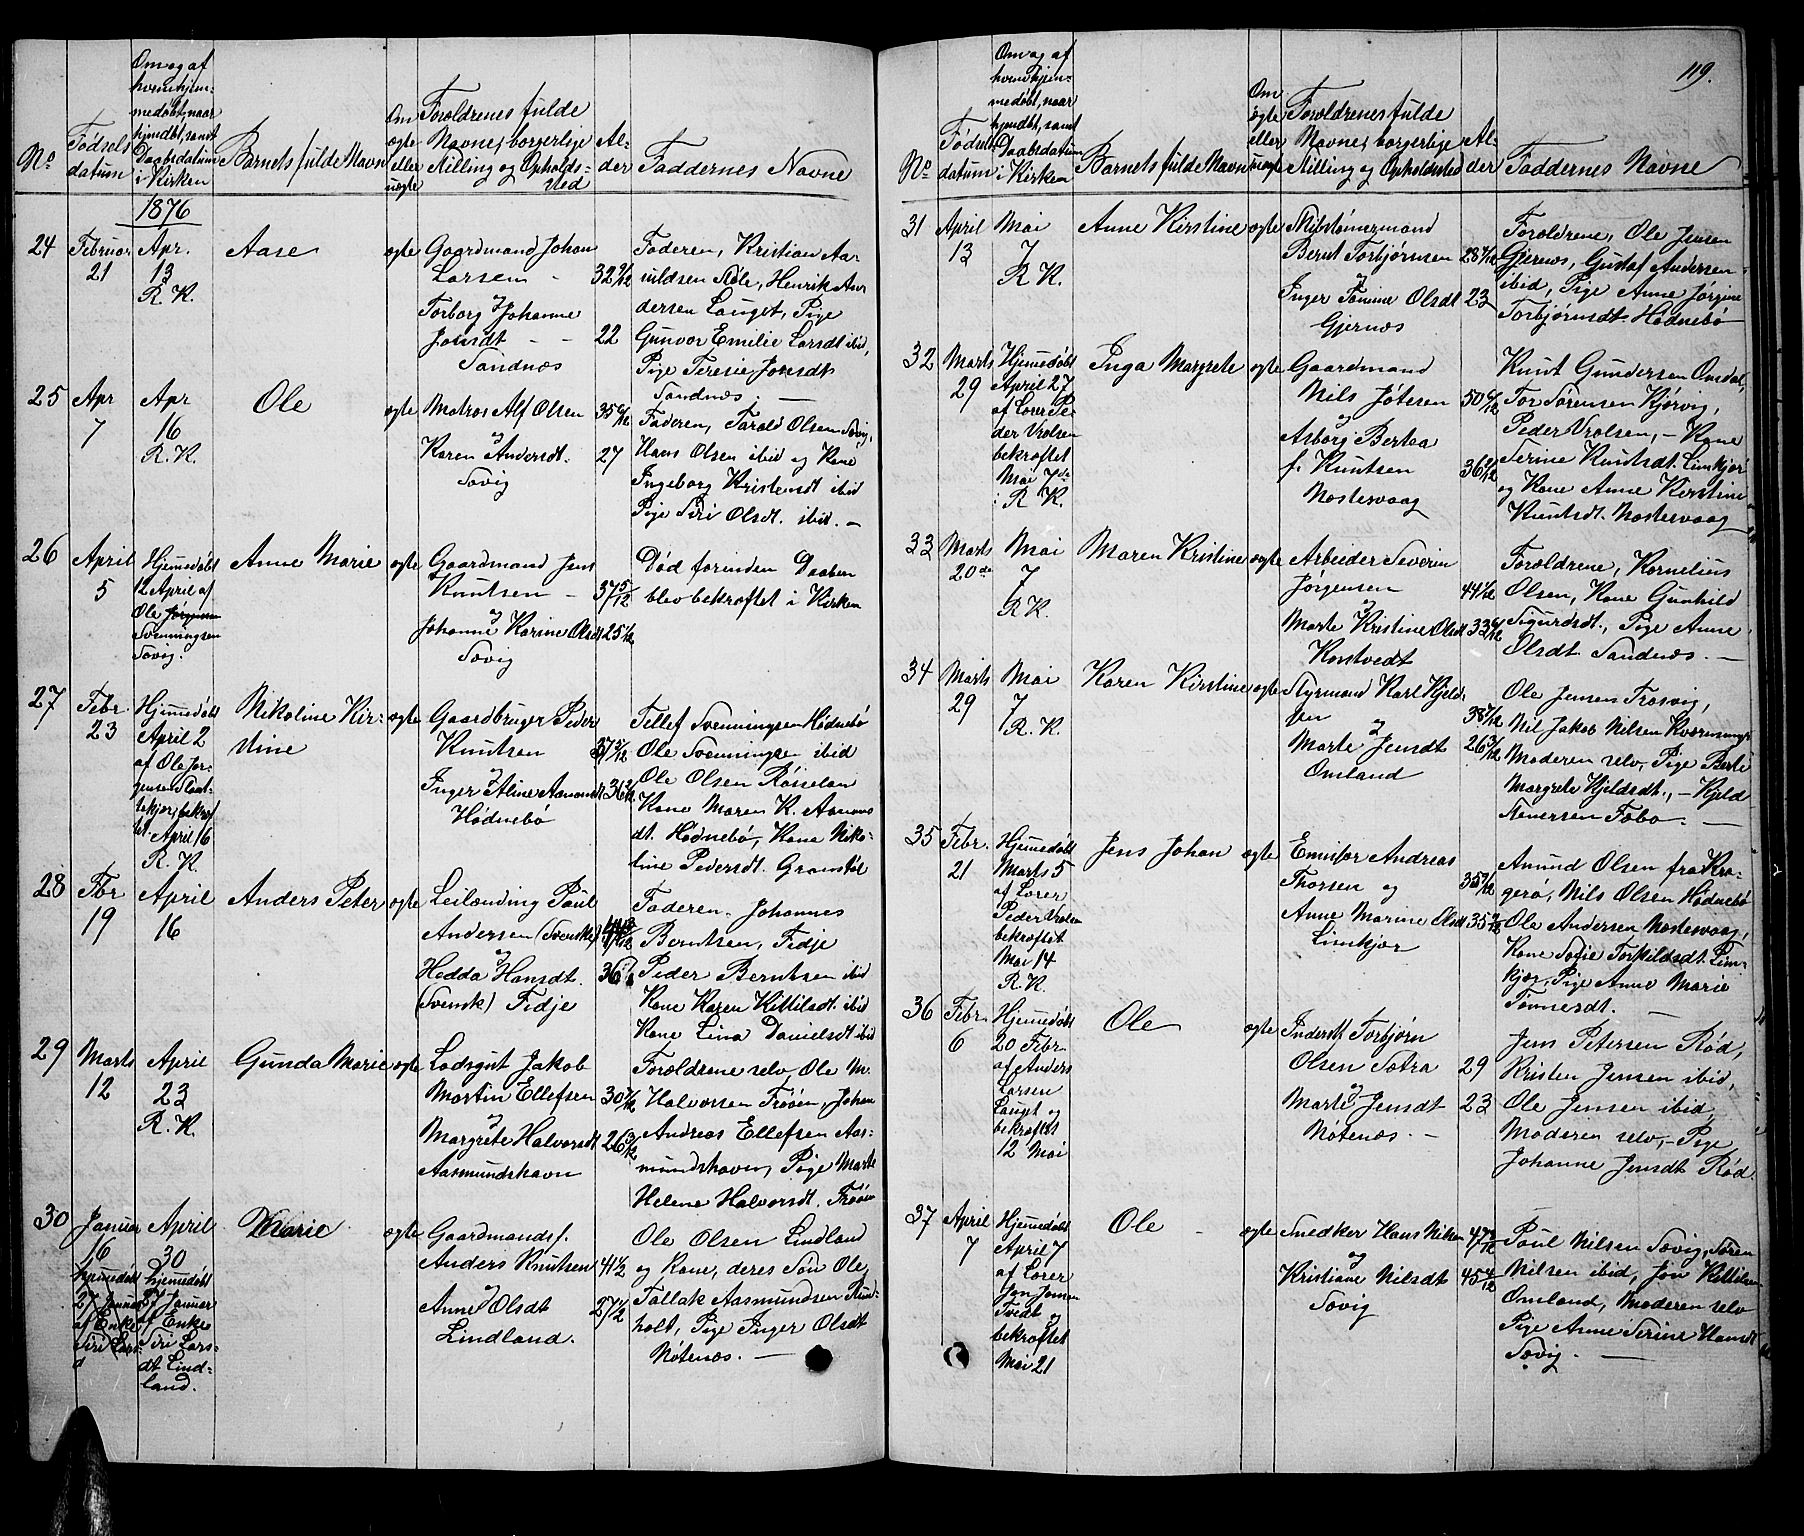 119.
No
Fødsels
datum
Om og af
hvem hjem-
medøbt, naar
hjmdøbt, samt
Daabsdatum
i Kirken
Barnets fulde Navn
Om
ægte
eller
uægte
Forældrenes fulde
Navne, borgerlige
Stilling og Opholds-
sted
Al-
der
Faddernes Navne
1876
24
Februar
21
Apr.
13
R. K.
Aase
ægte
Gaardmand Johan
Larsen -
Torborg Johanne
Jonsdt - -
Sandnæs
22
Faderen, Kristian Aa-
nuldsen Støle, Henrik An-
dersen Lauget, Pige
Gunvor Emilie Larsdt ibid,
Pige Teresie Jonsdt
Sandnæs. -
25
Apr
7
Apr
16
R. K.
Ole
ægte
Matros Alf Olsen
og
Karen Andersdt.
Søvig
27
Faderen, Tarald Olsen Søvig,
Hans Olsen ibid og Kone
Ingeborg Kristensdt ibid
Pige Siri Olsdt. ibid. -
26
April
5
Hjemmedøbt
12 April af
Ole Jørgensen
Svenningsen
Søvig.
Anne Marie
ægte
Gaardmand Jens
Knutsen -
og
Johanne Karine Olsdt
Søvig
37 5/12
Død forinden Daaben
blev bekræftet i Kirken
27
Febr.
23
Hjemmedøbt
April 2
af Ole Jør-
gensen
bekræf-
tet April 16
R. K.
Nikoline Kir-
stine
ægte
Gaardbruger Peder
Knutsen
og
Inger Aline Aanonsdt
Hødnebø
Tellef Svenningsen Hødnebø
Ole Svenningsen ibid
Ole Olsen Røiselan
Kone Maren K. Aanons
dt. Hødnebø, Kone Niko-
line Pedersdt. Granstøl
28
Fbr
19
April
16
Anders Peter
ægte
Leilænding Paul
Andersen (Svenske)
og
Hedda Hansdt.
(Svensk) Fidje
Faderen. Johannes
Berntsen, Fidje
Peder Berntsen ibid
Kone Karen Kittilsdt ibid
Kone Lina Danielsdt ibid
29
Marts
12
April
23
R. K.
Gunda Marie
ægte
Lodsgut Jakob
Martin Ellefsen
og
Margrete Halvorsdt
Aasmundshavn
Forældrene selv, Ole M.
Halvorsen Trøen, Johan
Andreas Ellefsen Aas-
mundshavn, Pige Marte
Helene Halvorsdt. Trøen
30
Januar
16
Hjemmedøbt
27 Januar
af Enke
Siri Lars-
d
April
30
hjemmedøbt
27 Januar
af Enke
Siri Lars-
dt Lind-
land.
Marie
ægte
Gaardmandsf.
Anders Knutsen
og
Anne Olsdt
Lindland.
41 1/2
27 1/2
Ole Olsen Lindland
og Kone, deres Søn Ole,
Tallak Aasmundsen Rin-
holt, Pige Inger Olsdt
Nøtenæs. -
No
Fødsels
datum
Om og af
hvem hjem-
medøbt, naar
hjmdøbt, samt
Daabsdatum
i Kirken
Barnets fulde Navn
Om
ægte
eller
uægte
Forældrenes fulde
Navne, borgerlige
Stilling og Opholdsted
Al-
der
Faddernes Navne
31
April
13
Mai
7
R K.
Anne Kirstine
ægte
Skibstømmermand
Bernt Torbjørnsen
og
Inger Tomine Olsdt
Gjernæs
23
Forældrene, Ole Jensen
Gjernæs, Gustaf Andersen
ibid, Pige Anne Jørgine
Torbjørnsdt. Hødnebø
32
Marts
29
Hjemmedøbt
April 27
af Lærer Pe-
der Vrolsen
bekræftet
Mai 7de
i R K.
Inga Margrete
ægte
Gaardmand
Nils Jotesen
og
Asborg Bertea
f. Knutsen
Nostesvaag
Knut Gundersen Omdal,
Tor Sørensen Kjørvig,
Peder Vrolsen, - Kone
Terine Knutsdt. Limkjær
og Kone Anne Kirstine
Knutsdt. Nostesvaag
33
Marts
20de
Mai
7
R K.
Maren Kristine
ægte
Arbeider Severin
Jørgensen
og
Marte Kristine Olsdt
Kostvedt
Forældrene, Kornelius
Olsen, Kone Gunhild
Sigurdsdt., Pige Anne
Olsdt. Sandnæs. -
34
Marts
29
Mai
7
R. K.
Karen Kirstine
ægte
Styrmand Karl Kjeld-
sen
og
Marte Jensdt
Omland
Ole Jensen Trosvig,
Nil Jakob Nilsen
Moderen selv, Pige Berte
Margrete Kjeldsdt., - Kjeld
Stenersen Fobo. -
35
Febr.
21
Hjemmedøbt
Marts 5
af Lærer
Peder Vrolsen
bekræftet
Mai 14
R. K.
Jens Johan
ægte
Andreas
Thorsen og
Anne Marine Olsdt
Limkjær
Anund Olsen fra Kra-
gerø, Nils Olsen Hødnebø
Ole Andersen Nostesvaag,
Kone Sofie Torkildsdt. Lim-
kjær, Pige Anne Marie
Tønnesdt. -
36
Febr.
6
Hjemmedøbt
20 Febr.
af Anders
Larsen
Lauget og
bekræftet
12 Mai
Ole
ægte
Inderst Torbjørn
Olsen Satra
og
Marte Jensdt
Nøtenæs. -
29
23
Jens Petersen Rød,
Kristen Jensen ibid,
Ole Jensen ibid,
Moderen selv, - Pige
Johanne Jensdt Rød.
37
April
7
Hjemmedøbt
April 7
af Lærer
Jon Jonsen
Tvedt og
bekræftet
Mai 21
Ole -
ægte
Snedker Hans Nilsen
og
Kristiane Nilsdt
Søvig
45 4/12
Paul Nilsen Søvig, Søren
Nilsen ibid, Jon Kittilsen
Omland, Moderen selv
Pige Anne Serine Hansdt
Søvig. -